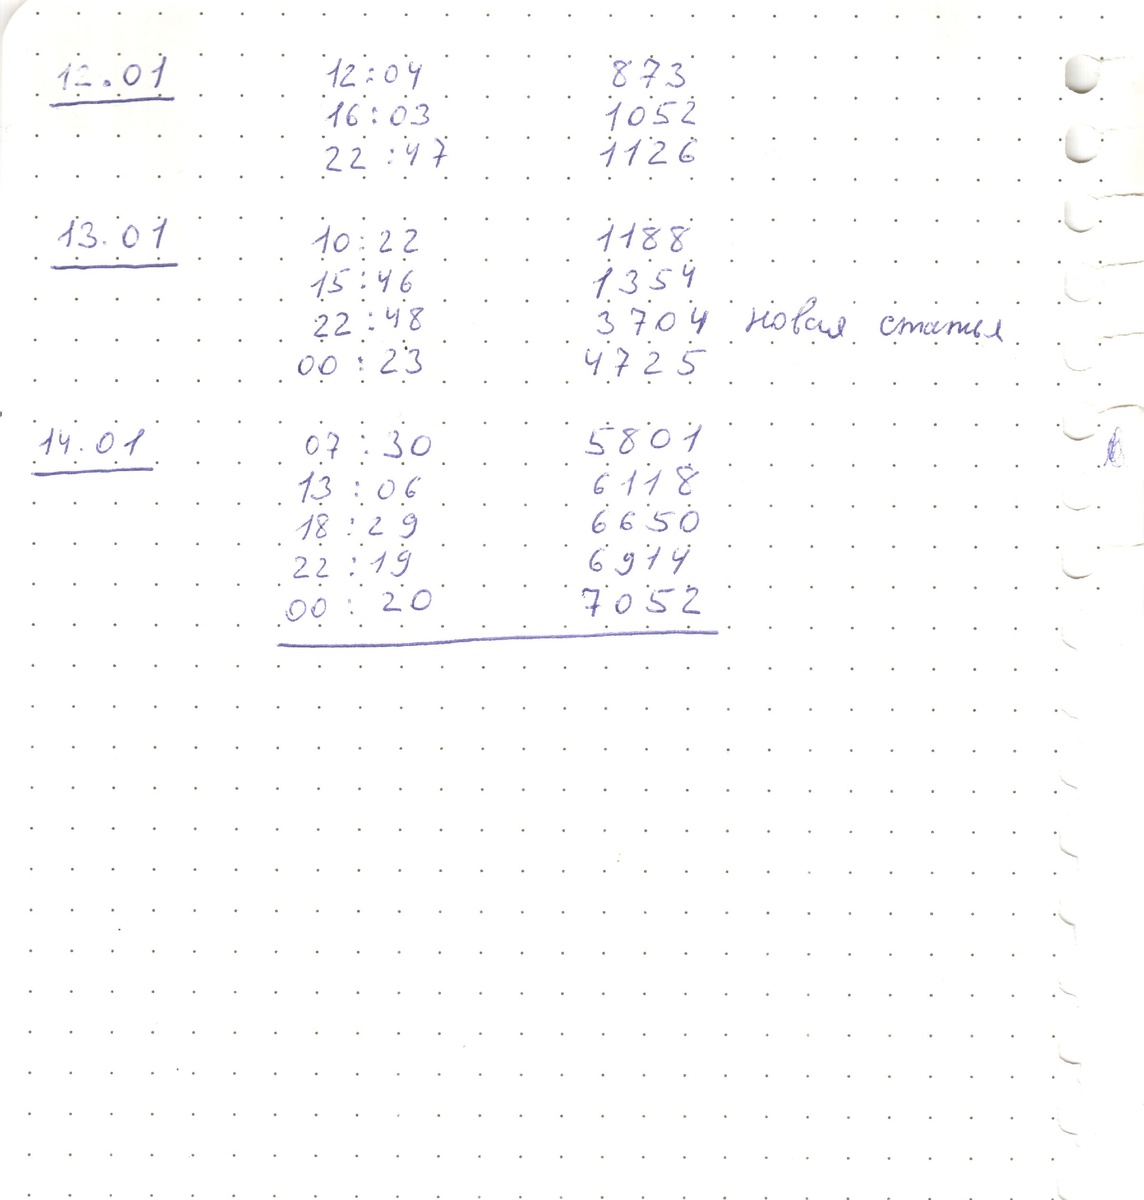 12.01 12:04 873
16:03 1052
22:47 1126
13.01 10:22 1188
15:46 1354
22:48 3704 новая статья
00:23 4725
14.01 07:30 5801
13:06 6118
18:29 6650
22:19 6914
00:20 7052